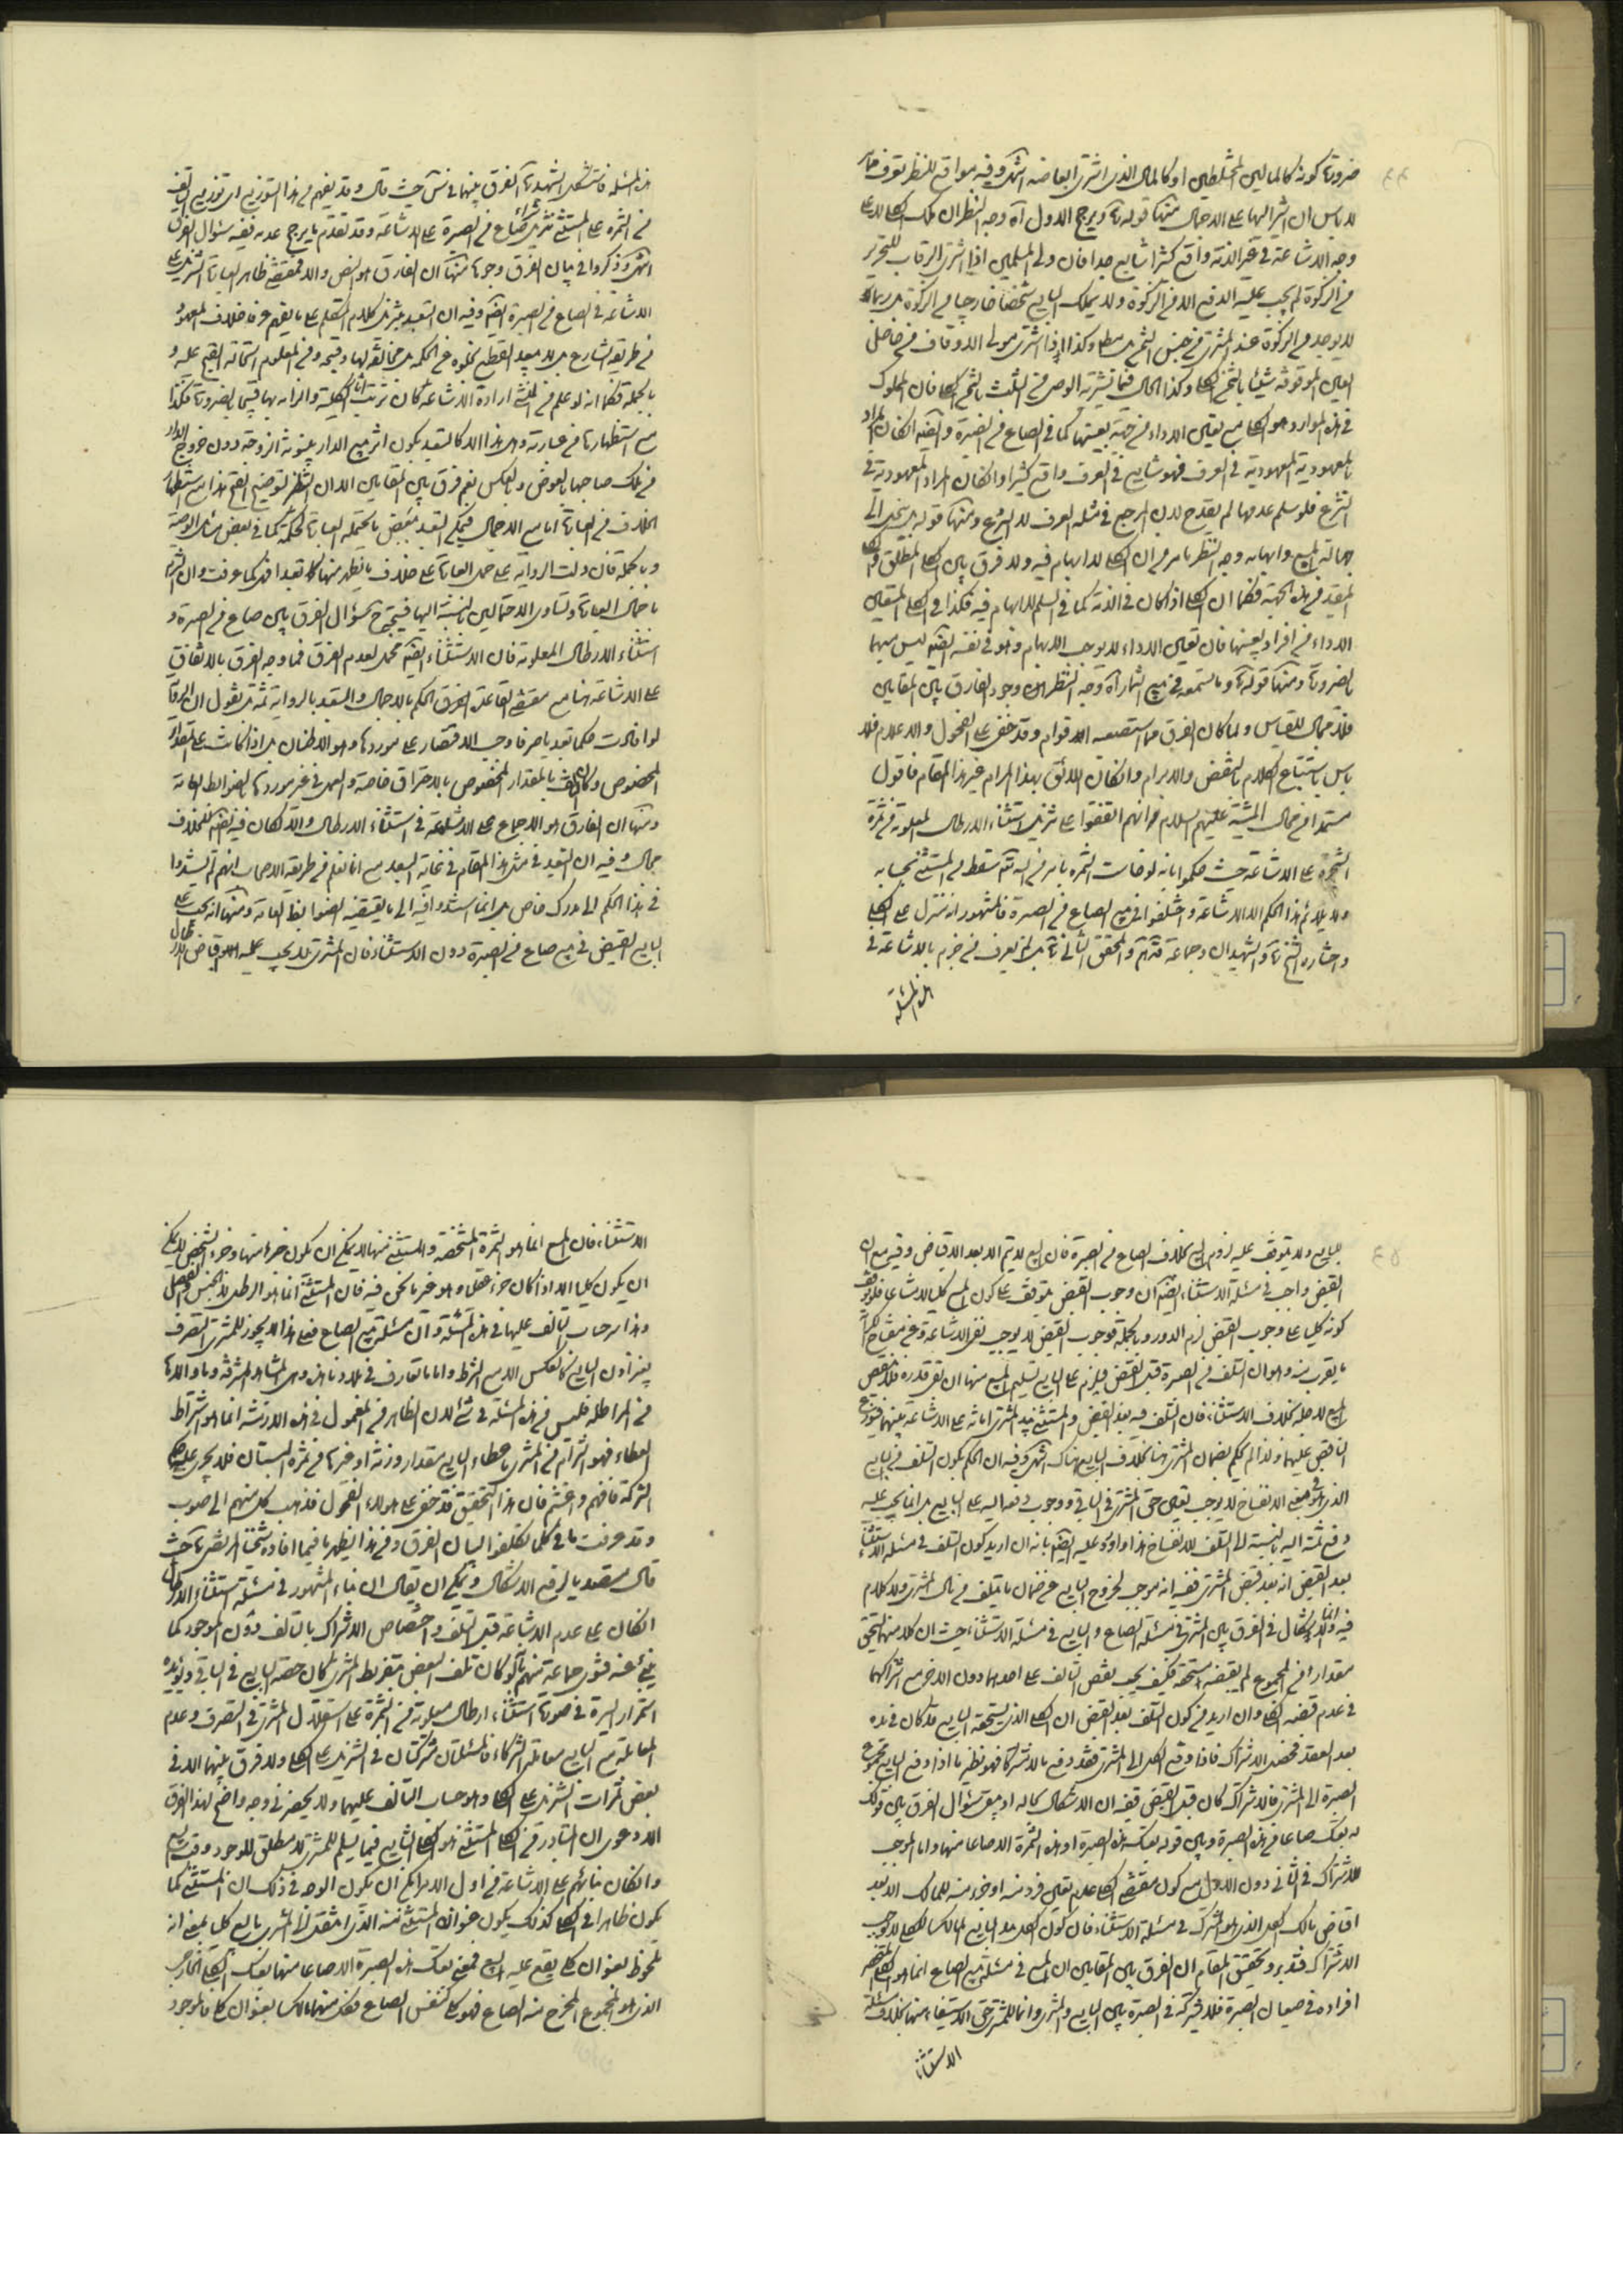 ضرورة كونه كالمالين المختلطين او كالمال الذى اشترى ابعاضه انتهى وفيه مواقع للنظر
لا باس ان اشير اليها على الاجمال منها قوله ويرجح الاول آه وجه النظر ان ملك الكلى لا على
وجه الاشاعة فى غير الذمة واقع كثيرا شايع جدا فان ولى المسلمين اذا اشترى الرقاب للتحرير
من الزكوة لم يجب عليه الدفع الا من الزكوة ولا يملك البايع شخصا خارجا من الزكوة بل ربما
لا يوجد من الزكوة عند المشترى من جنس الثمن وكذا اذا اشترى متولى الاوقاف من حاصل
العين الموقوفة شيئا بالثمن الكلى وكذا الحال فيما يشتريه الوصى من الثلث بالثمن الكلى فان المملوك
فى هذه الموارد هو الكلى مع تعين الاداء من جهة بعينها كما فى الصاع من الصبرة وايضا ان كان المراد
بالمعهودية المعهودية فى العرف فهو شايع فى العرف واقع كثيرا وان كان المراد المعهودية فى
الشرع فلو سلم عدمها لم يقدح لان المرجع فى مثله العرف لا الشرع ومنها قوله
جهالة المبيع وابهامه وجه النظر ما مر من ان الكلى لا ابهام فيه ولا فرق بين الكلى المطلق والكلى
المقيد من هذه الجهة فكما ان الكلى اذا كان فى الذمة كما فى السلم لا ابهام فيه فكذا فى الكلى المتعين
الاداء من افراد بعينها فان تعين الاداء لا يوجب الابهام وهو فى نفسه ايضا ليس مبهما
بالضرورة ومنها قوله وما ستسمعه فى بيع الثمار آه وجه النظر وجود الفارق بين المقامين
فلا مجال للقياس ولما كان الفرق مما استصعبه الاقوام وقد خفى على الفحول والاعلام فلا
باس باستتباع الكلام بالنقض والابرام وان كان اللائق بهذا المرام غير هذا المقام فاقول
مستمدا من جمال المشية عليهم السلام انهم اتفقوا على تنزيل استثناء الارطال المعلومة من ثمرة
الشجرة على الاشاعة حيث حكموا بانه لو خاست الثمرة بامر من الله تعالى سقط من المستثنى بحسابه
ولا يلائم هذا الحكم الا الاشاعة واختلفوا فى بيع الصاع من الصبرة فالمشهور انه ينزل على الكلى
واختاره الشيخ والشهيدان وجماعة منهم والمحقق الثانى بل لم يعرف من جزم بالاشاعة فى
هذه المسئلة
هذه المسئلة فاستشكل الشهيد الفرق بينهما فى حيث قال وقد يفهم من هذا التوزيع
فى الثمرة على المستثنى تنزيل شراء صاع من الصبرة على الاشاعة وقد تقدم ما يرجح عدمه ففيه سؤال الفرق
انتهى وذكروا فى بيان الفرق وجوها منها ان الفارق هو النص والا فمقتضى ظاهر العبارة التنزيل على
الاشاعة فى الصاع من الصبرة ايضا وفيه ان التعبد بتنزيل كلام المتكلم على ما يفهم عرفا خلاف المعهود
من طريقة الشارع
بالجملة فكما انه لو علم من المنشئ ارادة الاشاعة كان ترتيب اثار الكلية والزامه بها قبيحا بالضرورة فكذا
مع استظهارها من عبارته وهل هذا الا كالتعبد بكون اثر بيع الدار بينونة الزوجة دون خروج الدار
من ملك صاحبها بالعوض وبالعكس نعم فرق بين المقامين
الخلاف من العبارة اما مع الاجمال فيمكن التعبد ببعض ما تحتمله العبارة المجملة كما فى بعض مسائل الوصية
وبالجملة فان دلت الرواية على حمل العبارة على خلاف ما يظهر منها تعبدا كما عرفت
باجمال العبارة وتساوى الاحتمالين بالنسبة اليها فيتجه سؤال الفرق بين صاع من الصبرة و
استثناء الارطال المعلومة فان الاستثناء ايضا مجمل لعدم الفرق فما وجه الفرق بالاتفاق
على الاشاعة هنا مع مقتضى القاعدة الفرق الحكم بالاجمال والتعبد بالرواية ثمة بل نقول ان الرواية
لو افادت حكما تعبديا صرفا وجب الاقتصار على موردها وهو الاطنان بل اذا كانت على المقدار
المخصوص وكان التلف بالمقدار المخصوص بالاحتراق خاصة والعمل فى غير موردها بالضوابط العامة
ومنها ان الفارق هو الاجماع على الاشاعة فى استثناء الارطال والا لكان فيه ايضا للخلاف
مجال وفيه ان التعبد فى مثل هذا المقام فى غاية البعد مع انا نعلم من طريقة الاصحاب انهم لم يستندوا
فى هذا الحكم الى مدرك خاص بل انما استندوا فيه الى ما يقتضيه الضوابط العامة ومنها انه يجب على
البايع القبض فى بيع صاع من الصبرة دون الاستثناء فان المشترى لا يجب عليه الاقباض
للبايع ولا يتوقف عليه لزوم البيع بخلاف الصاع من الصبرة فان البيع لا يتم الا بعد الاقباض وفيه مع ان
القبض واجب فى مسئلة الاستثناء ايضا ان وجوب القبض يتوقف على كون المبيع كليا لا مشاعا فلو توقف
كونه كليا على وجوب القبض لزم الدور وبالجملة فوجوب القبض لا يوجب نفى الاشاعة وعن مفتاح الكرامة
ما يقرب منه وهو ان التلف من الصبرة قبل القبض فيلزم على البايع تسليم المبيع منها ان بقى قدره فلا ينقص
المبيع لاجله بخلاف الاستثناء فان التلف فيه بعد القبض والمستثنى بيد المشترى امانة على الاشاعة بينهما فيوزع
الناقص عليهما ولذا لم يحكم بضمان المشترى هنا بخلاف البايع هناك انتهى وفيه ان الحكم بكون التلف من البايع
الذى هو فى معنى الانفساخ لا يوجب تعين حق المشترى فى الباقى ووجوب دفعه اليه على البايع بل انما يجب عليه
دفع ثمنه اليه بالنسبة الى التلف للانفساخ هذا واورد عليه ايضا بانه ان اريد كون التلف فى مسئلة الاستثناء
بعد القبض انه بعد قبض المشترى ففيه انه موجب لخروج البايع عن ضمان ما يتلف من مال المشترى ولا كلام
فيه وانما الاشكال فى الفرق بين المشترى فى مسئلة الصاع والبايع فى مسئلة الاستثناء حيث ان كلا منهما يستحق
مقدارا من المجموع لم يقبضه مستحقه فكيف يحسب نقص التالف على احدهما دون الاخر مع اشتراكهما
فى عدم قبضه الكلى وان اريد من كون التلف بعد القبض ان الكلى الذى يستحقه البايع قد كان فى يده
بعد العقد فحصل الاشتراك فاذا دفع الكل الى المشترى فقد دفع مالا مشتركا فهو نظير ما اذا دفع البايع مجموع
الصبرة الى المشترى فالاشتراك كان قبل القبض ففيه ان الاشكال بحاله اذ يبقى سؤال الفرق بين قوله
له بعتك صاعا من هذه الصبرة وبين قوله بعتك هذه الصبرة او هذه الثمرة الا صاعا منها وما الموجب
للاشتراك فى الثانى دون الاول مع كون مقتضى الكلى عدم تعين فرد منه او جزء منه للمالك الا بعد
اقباض مالك الكل الذى هو المشترى فى مسئلة الاستثناء فان كون الكل بيد البايع المالك للكلى لا يوجب
الاشتراك فتدبر وتحقيق المقام ان الفرق بين المقامين ان المبيع فى مسئلة بيع الصاع انما هو الكلى المنحصر
افراده فى صيعان الصبرة فلا شركة فى الصبرة بين البايع والمشترى وانما للمشترى حق الاستيفاء منها بخلاف مسئلة
الاستثناء
الاستثناء فان المبيع انما هو الثمرة المشخصة والمستثنى منها لا يمكن ان يكون خارجا منها وجزء الشخص لا يمكن
ان يكون كليا الا اذا كان جزءا عقليا وهو غير ما نحن فيه فان المستثنى انما هو الرطل لا الجنس والفصل
وهذا سر حساب التالف عليهما فى هذه المسئلة دون مسئلة بيع الصاع فعلى هذا لا يجوز للمشترى التصرف
بغير اذن البايع كالعكس الا مع الشرط واما ما تعارف فى بلادنا هذه وهى المشاهد المشرفة وما والاها
من المراطلة فليس من هذه المسئلة فى شئ لان الظاهر من المعمول فى هذه الازمنة انما هو اشتراط
العطاء فهو التزام من المشترى باعطاء البايع مقدار وزنة او غيرها من ثمرة البستان فلا يجرى عليه حكم
الشركة فافهم واغتنم فان هذا التحقيق قد خفى على هؤلاء الفحول فذهب كل منهم الى صوب
وقد عرفت ما فى كلما تكلفوا لبيان الفرق ومن هذا يظهر ما فيما افاده شيخنا المرتضى حيث
قال بصدد ما يرفع الاشكال ويمكن ان يقال ان بناء المشهور فى مسئلة استثناء الارطال
ان كان على عدم الاشاعة قبل التلف واختصاص الاشتراك بالتالف دون الموجود كما
ينبئ عنه فتوى جماعة منهم بانه لو كان تلف البعض بتفريط المشترى كان حصة البايع فى الباقى ويؤيده
استمرار السيرة فى صورة استثناء ارطال معلومة من الثمرة على استقلال المشترى فى التصرف وعدم
المعاملة مع البايع معاملة الشركاء فالمسئلتان مشتركتان فى التنزيل على الكلى ولا فرق بينهما الا فى
بعض ثمرات التنزيل على الكلى وهو حساب التالف عليهما ولا يحضرنى وجه واضح لهذا الفرق
الا دعوى ان المتبادر من الكلى المستثنى هو الكلى الشايع فيما يسلم للمشترى لا مطلق الموجود وقت البيع
وان كان بنائهم على الاشاعة من اول الامر امكن ان يكون الوجه فى ذلك ان المستثنى كما
يكون ظاهرا فى الكلى كذلك يكون عنوان المستثنى منه الذى انتقل الى المشترى بالبيع كليا بمعنى انه
ملحوظ بعنوان كلى يقع عليه البيع فمعنى بعتك هذه الصبرة الا صاعا منها بعتك الكلى الخارجى
الذى هو المجموع المخرج منه الصاع فهو كلى كنفس الصاع فكل منهما مالك بعنوان كلى فالموجود